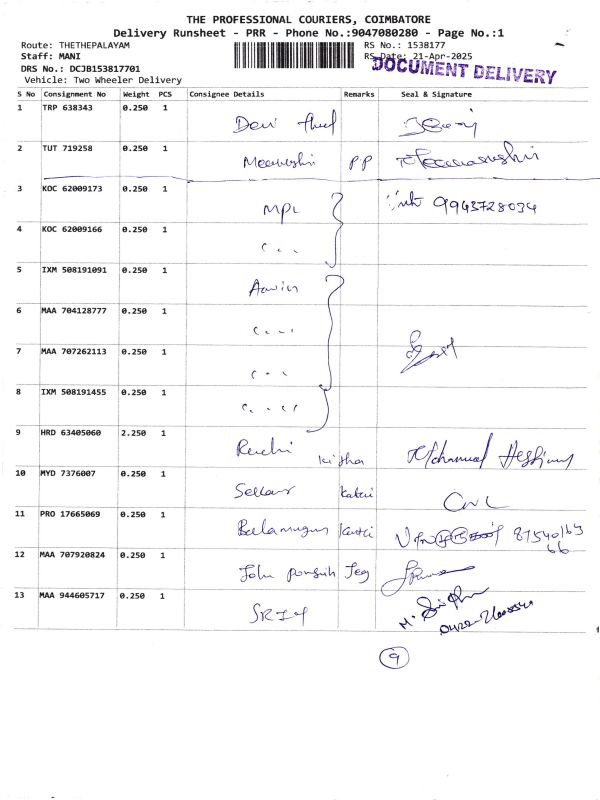 THE PROFESSIONAL COURIERS, COIMBATORE
Delivery Runsheet - PRR - Phone No.:9047080280 - Page No.:1
Route: THETHEPALAYAM
RS No.: 1538177
Staff: MANI
RS Date: 21-Apr-2025
DRS No.: DCJB153817701
DOCUMENT DELIVERY
Vehicle: Two Wheeler Delivery
S No Consignment No Weight PCS Consignee Details Remarks Seal & Signature
1 TRP 638343 0.250 1 Devi
2 TUT 719258 0.250 1 Meenakshi PP
3 KOC 62009173 0.250 1 MPL 9943728034
4 KOC 62009166 0.250 1
5 IXM 508191091 0.250 1
6 MAA 704128777 0.250 1
7 MAA 707262113 0.250 1
8 IXM 508191455 0.250 1
9 HRD 63405060 2.250 1
10 MYD 7376007 0.250 1
11 PRO 17665069 0.250 1 Balamurugan
12 MAA 707920824 0.250 1 John Jeg
13 MAA 944605717 0.250 1
9